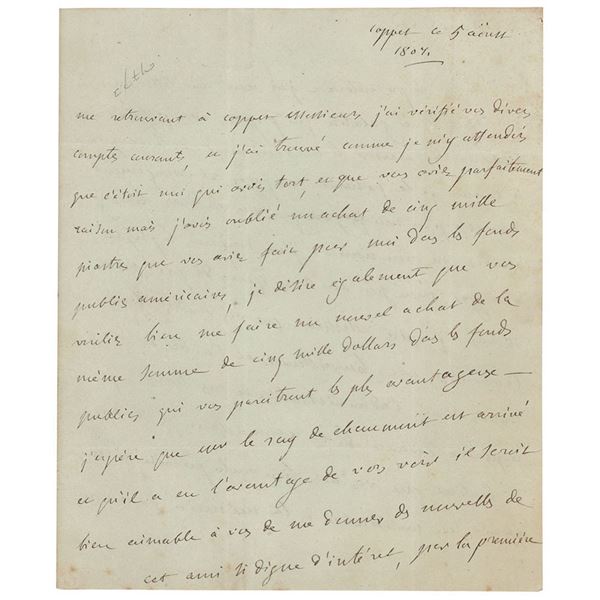 coppet ce 5 août
1807.
me retrouvant à coppet messieurs j'ai vérifié vos divers
comptes courants, et j'ai trouvé comme je m'y attendois
que c'étoit moi qui avois tort, et que vous aviez parfaitement
raison mais j'avois oublié un achat de cinq mille
piastres que vous aviez fait pour moi dans les fonds
publics américains, je désire également que vous
vouliez bien me faire un nouvel achat de la
même somme de cinq mille dollars dans les fonds
publics qui vous paroitront les plus avantageux —
j'espère que le ray de chaumont est arrivé
et qu'il a eu l'avantage de vous voir il seroit
bien aimable à vous de me donner des nouvelles de
cet ami si digne d'intéret, par la première